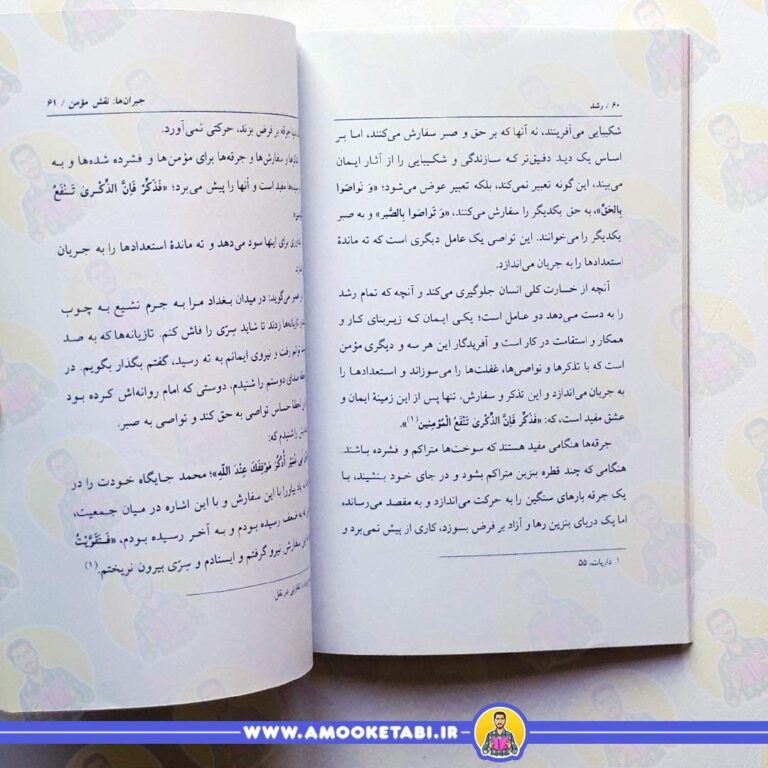 ۶۰ / رشد
شکیبایی می‌آفرینند، نه آنها که بر حق و صبر سفارش می‌کنند، اما بر
اساس یک دید دقیق‌تر که سازندگی و شکیبایی را از آثار ایمان
می‌بیند، این گونه تعبیر نمی‌کند، بلکه تعبیر عوض می‌شود؛ «وَ تَواصَوا
بِالحَقِّ»، به حق یکدیگر را سفارش می‌کنند، «وَ تَواصَوا بِالصَّبر» و به صبر
یکدیگر را می‌خوانند. این تواصی یک عامل دیگری است که ته ماندهٔ
استعدادها را به جریان می‌اندازد.
آنچه از خسارت کلی انسان جلوگیری می‌کند و آنچه که تمام رشد
را به دست می‌دهد دو عامل است؛ یکی ایمان که زیربنای کار و
همکار و استقامت در کار است و آفریدگار این هر سه و دیگری مؤمن
است که با تذکرها و تواصی‌ها، غفلت‌ها را می‌سوزاند و استعدادها را
به جریان می‌اندازد و این تذکر و سفارش، تنها پس از این زمینهٔ ایمان و
عشق مفید است، که: «فَذَكِّرْ فَإِنَّ الذِّكْرىٰ تَنْفَعُ الْمُؤمِنين (۱)».
جرقه‌ها هنگامی مفید هستند که سوخت‌ها متراکم و فشرده باشند.
هنگامی که چند قطره بنزین متراکم بشود و در جای خود بنشیند، با
یک جرقه بارهای سنگین را به حرکت می‌اندازد و به مقصد می‌رساند،
اما یک دریای بنزین رها و آزاد بر فرض بسوزد، کاری از پیش نمی‌برد و
۱. ذاریات، ۵۵
جبران‌ها: نقش مؤمن / ۶۱
جرقه بر فرض بزند، حرکتی نمی‌آورد.
و سفارش‌ها و جرقه‌ها برای مؤمن‌ها و فشرده شده‌ها و به
مفید است و آنها را پیش می‌برد؛ «فَذَكِّرْ فَإِنَّ الذِّكْرىٰ تَنْفَعُ
برای اینها سود می‌دهد و ته ماندهٔ استعدادها را به جریان
می‌گوید: در میدان بغداد مرا به جرم تشیع به چوب
زدند تا شاید سِرّی را فاش کنم. تازیانه‌ها که به صد
رفت و نیروی ایمانم به ته رسید، گفتم بگذار بگویم. در
صدای دوستم را شنیدم، دوستی که امام روانه‌اش کرده بود
لحظهٔ حساس تواصی به حق کند و تواصی به صبر.
شنیدم که:
اُذْكُرْ مَوْقِفَكَ عِنْدَ اللّٰهِ»؛ محمد جایگاه خودت را در
بیاور! با این سفارش و با این اشاره در میان جمعیت،
به ضعف رسیده بودم و به آخر رسیده بودم، «فَتَقَوَّیْتُ
سفارش نیرو گرفتم و ایستادم و سِرّی بیرون نریختم.(۱)
WWW.AMOOKETABI.IR